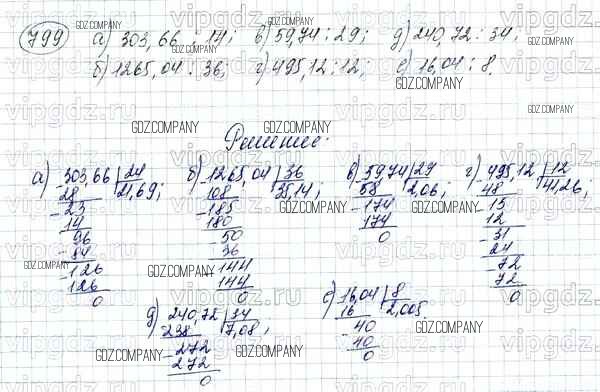 799 а) 303,66 : 14; в) 59,74 : 29; д) 240,72 : 34;
б) 1265,04 : 36; г) 495,12 : 12; е) 16,04 : 8.
Решение:
а) 303,66 | 24
28 | 21,69;
23
14
96
84
126
126
0
б) 1265,04 | 36
108 | 35,14;
185
180
50
36
144
144
0
в) 59,74 | 29
58 | 2,06;
174
174
0
г) 495,12 | 12
48 | 41,26;
15
12
31
24
72
72
0
д) 240,72 | 34
238 | 7,08;
272
272
0
е) 16,04 | 8
16 | 2,005.
40
40
0
GDZ.COMPANY
vipgdz.ru